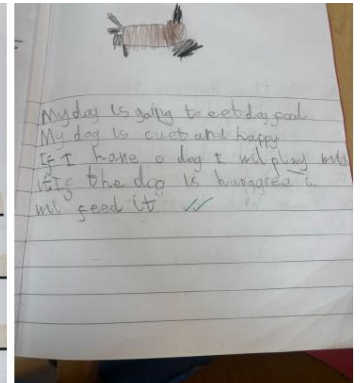 My dog is going to eet dog food
My dog is cuet and happy
If I hane a dog I wil play with
it If the dog is hunggree i
wil feed it